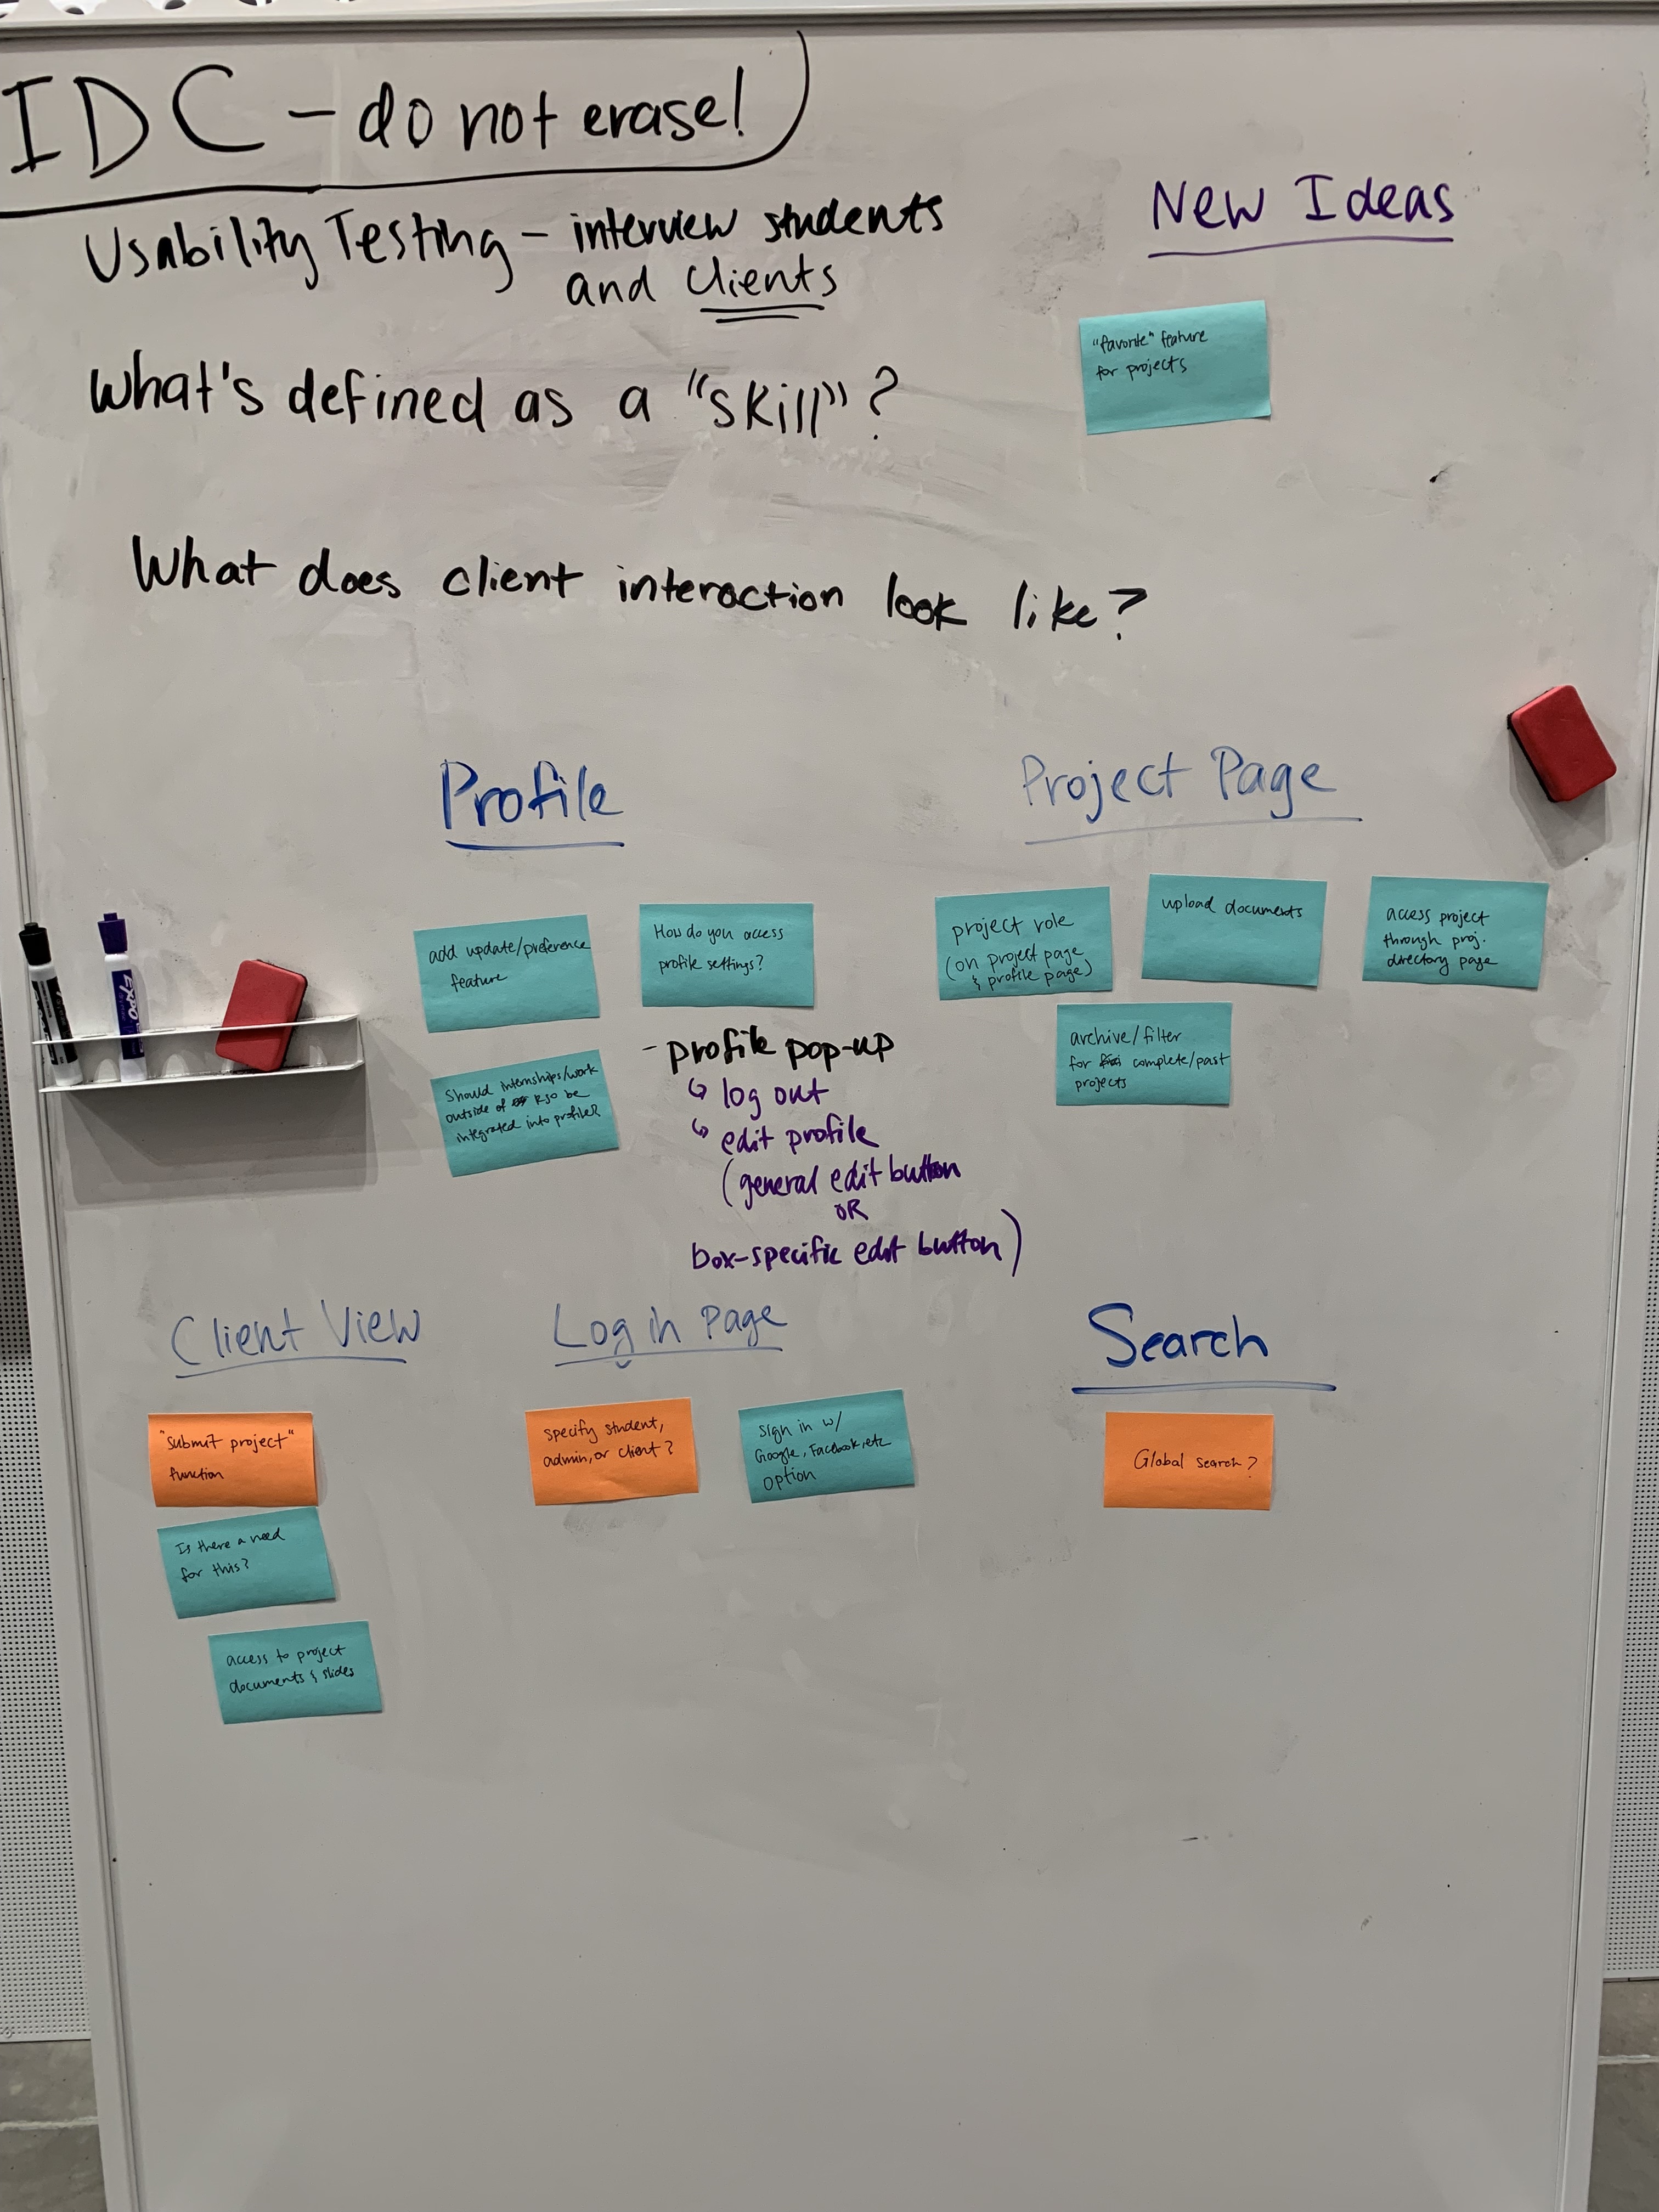 IDC - do not erase!
Usability Testing - interview students
and clients
What's defined as a "skill"?
What does client interaction look like?
New Ideas
"favorite" feature
for projects
Profile
add update/preference
feature
How do you access
profile settings?
Should internships/work
outside of RSO be
integrated into profile?
- profile pop-up
↳ log out
↳ edit profile
(general edit button
OR
box-specific edit button)
Project Page
project role
(on project page
& profile page)
upload documents
access project
through proj.
directory page
archive/filter
for complete/past
projects
Client View
"submit project"
function
Is there a need
for this?
access to project
documents & slides
Login Page
specify student,
admin, or client?
sign in w/
Google, Facebook, etc
option
Search
Global search?
EXPO